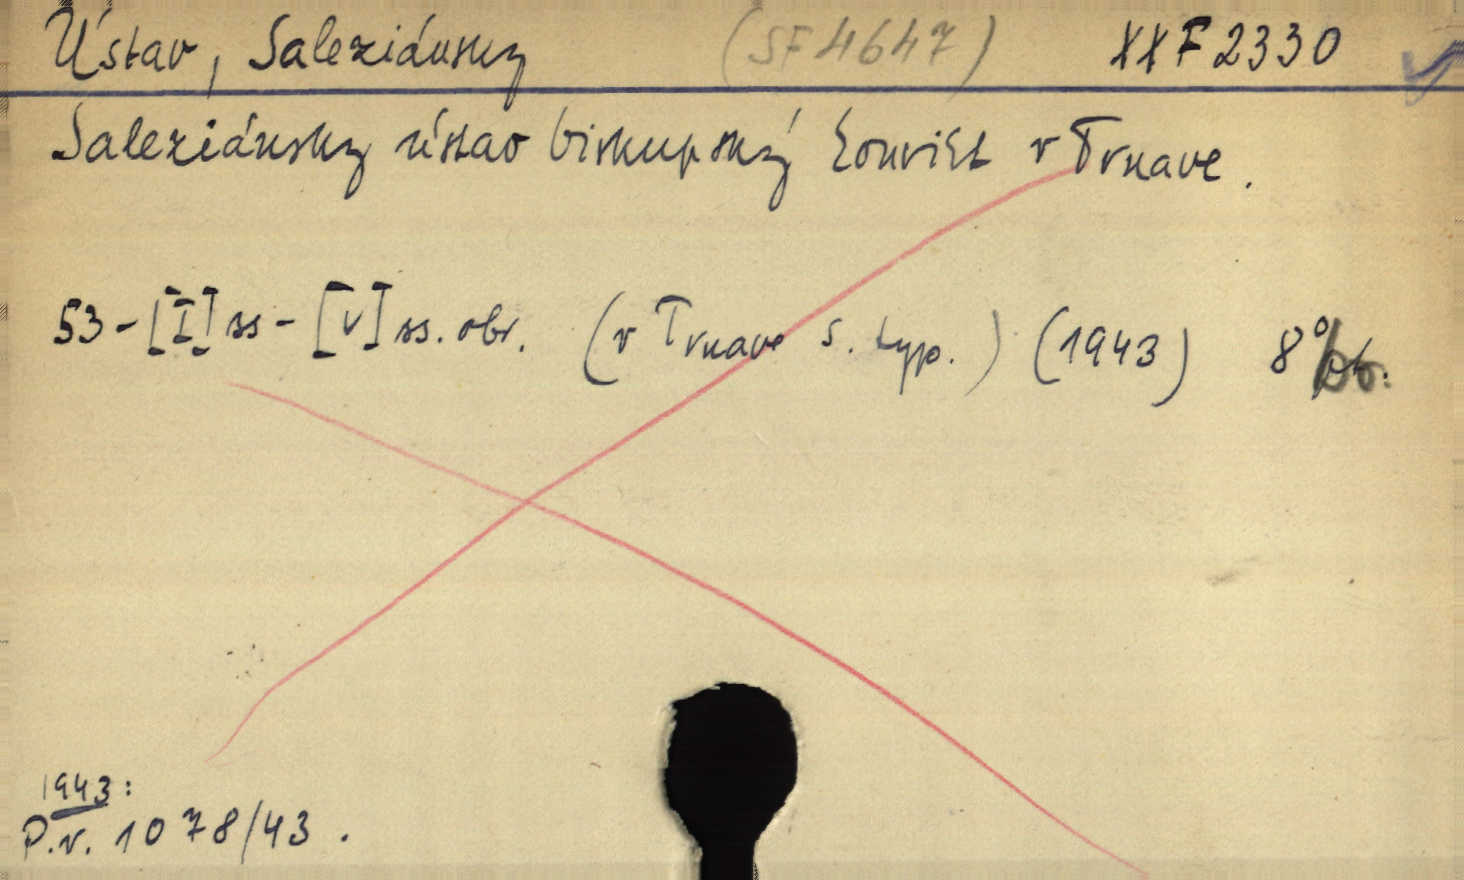 Ústav, Saleziánsky (SF 4647) XXF 2330
Saleziánsky ústav biskupský konvikt v Trnave.
53-[I] ss - [V] ss. obr. (v Trnave s. typ.) (1943) 8°
1943:
P.v. 1078/43.